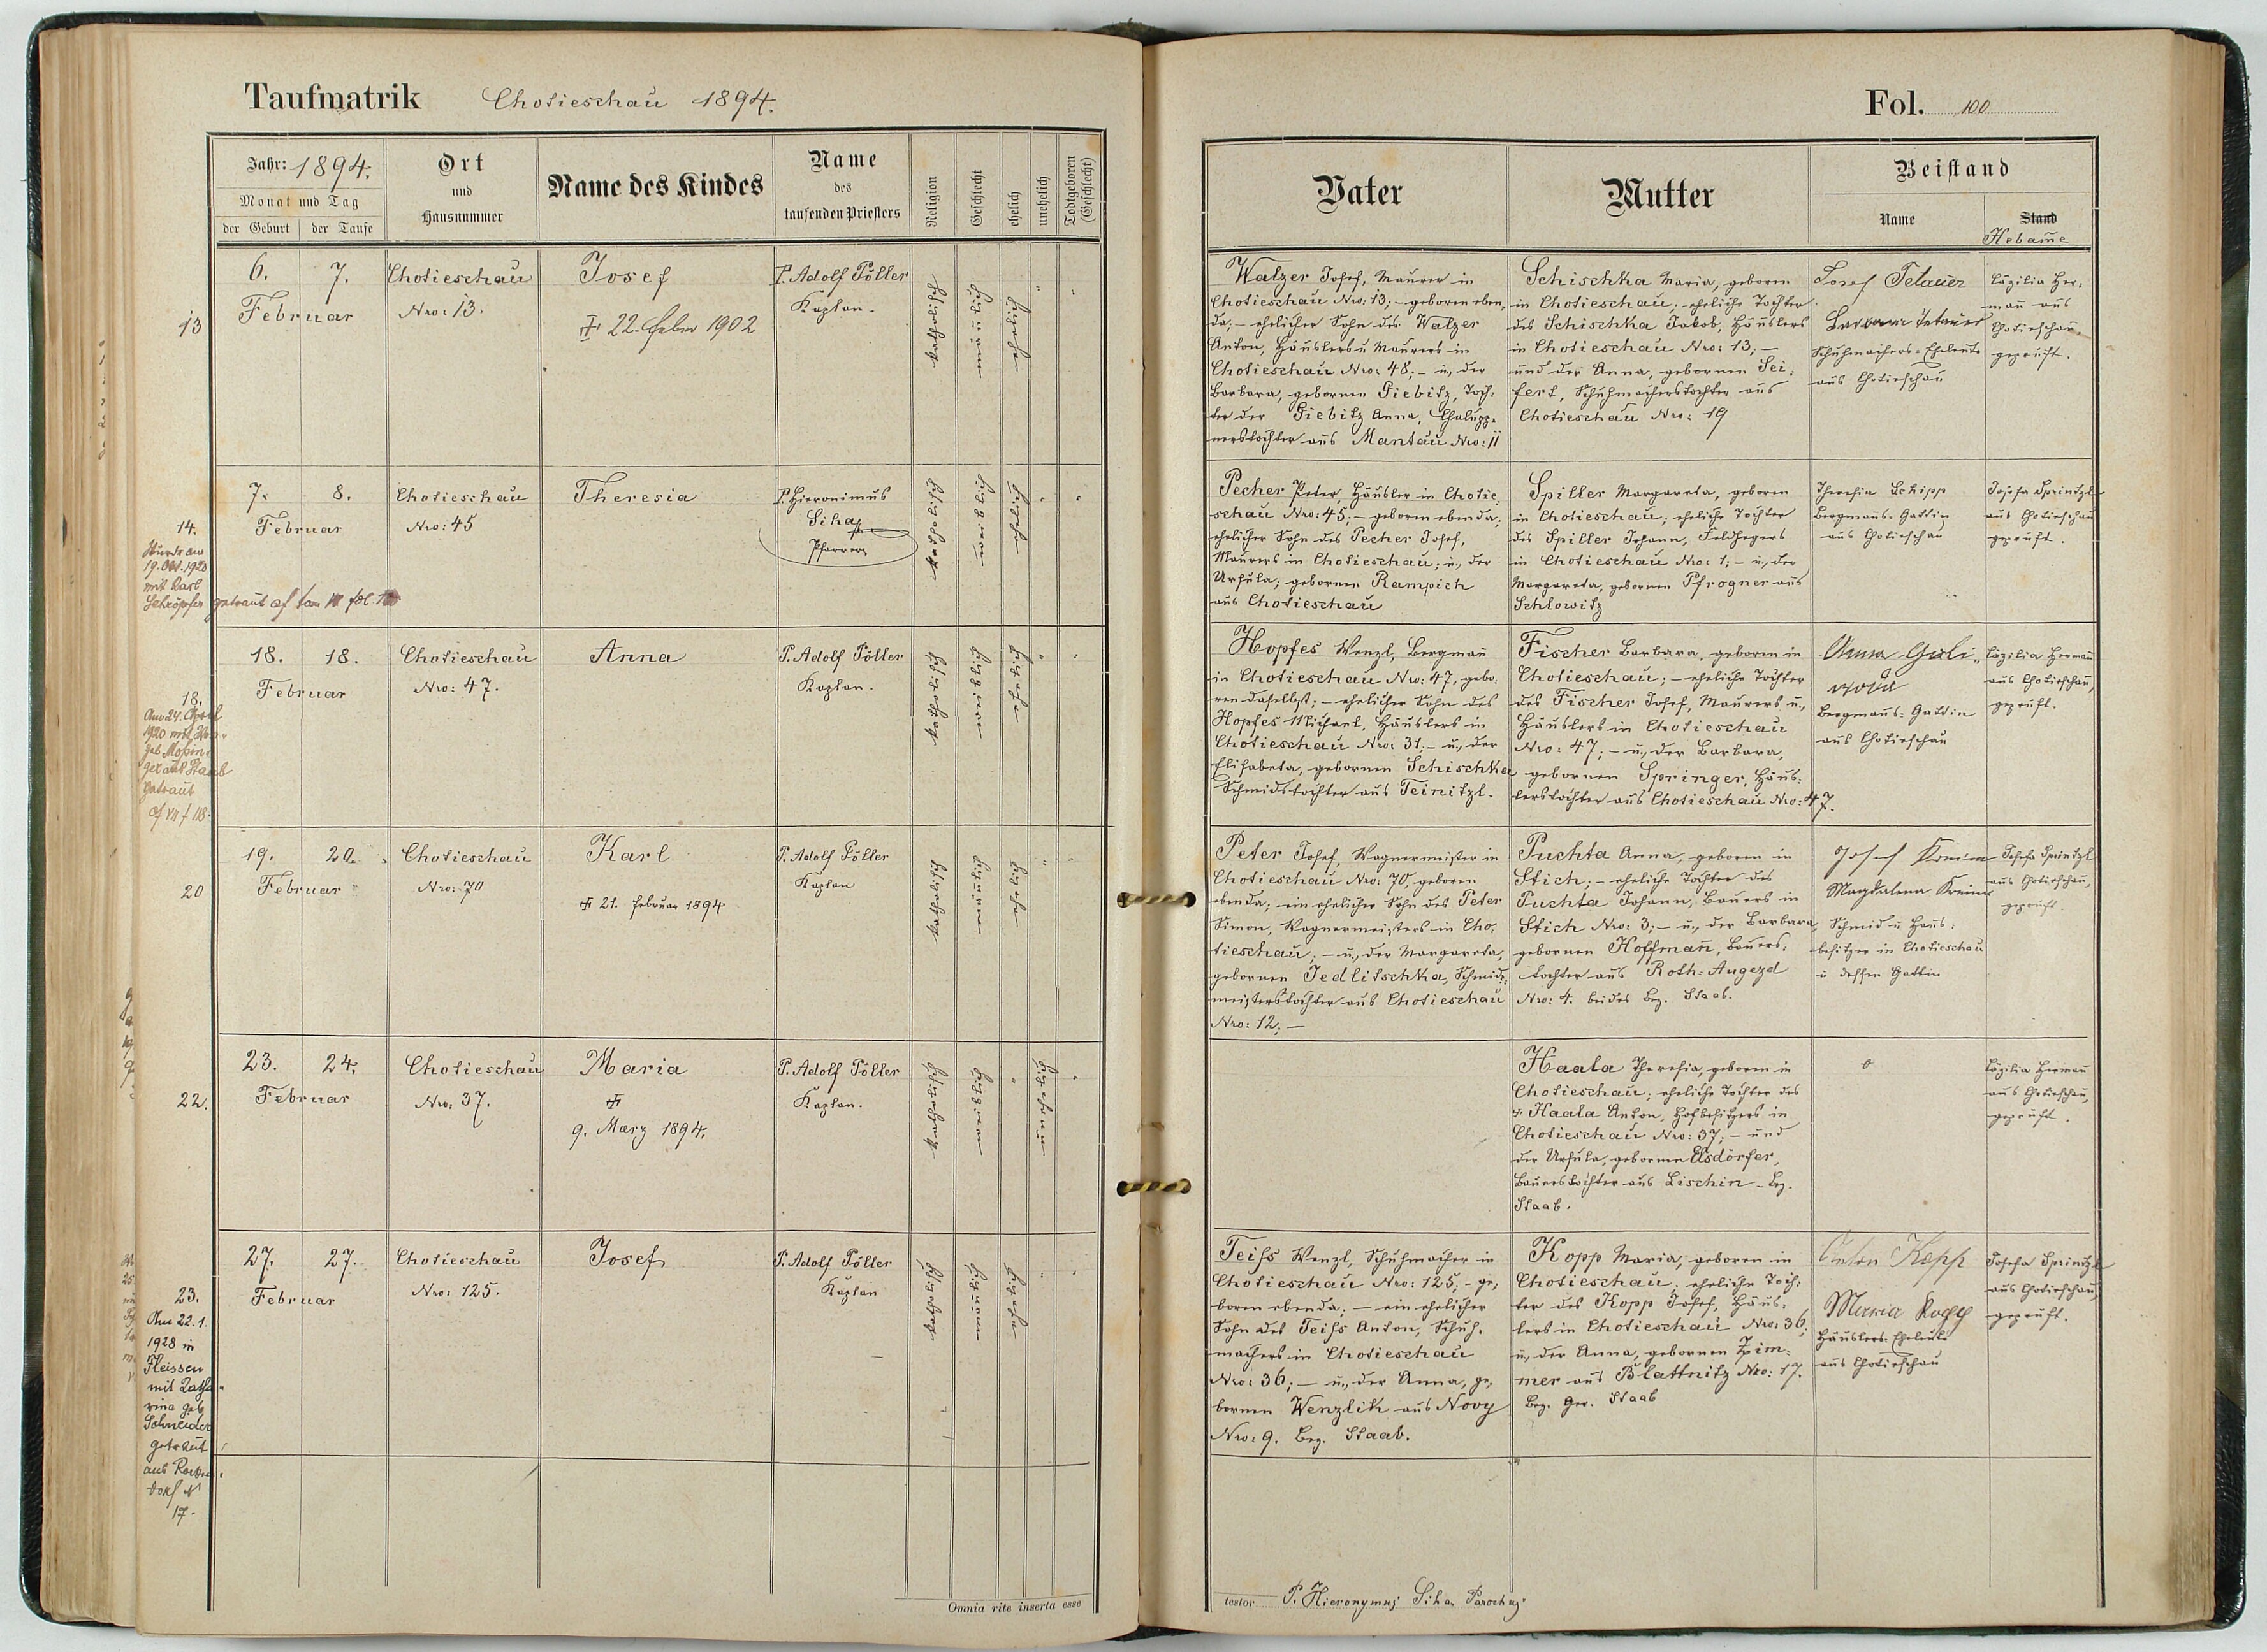 Taufmatrik Chotieschau 1894.
Jahr: 1894.
Monat und Tag
der Geburt
der Taufe
Ort
und
Hausnummer
Name des Kindes
Name
des
taufenden Priesters
Religion
Geschlecht
ehelich
unehelich
Todtgeboren
(Geschlecht)
13
6. 7.
Februar
Chotieschau
Nro: 13.
Josef
22. Feber 1902
P. Adolf Töller
Kaplan.
katholisch
14.
Wurde am
19. Okt. 1920
mit Karl
Schröpfer getraut
7. 8.
Februar
Chotieschau
Nro: 45
Theresia
P. Hieronimus
Siha
Pfarrer
katholisch
18.
Am 24. April
1920 mit
geb.
getraut
18. 18.
Februar
Chotieschau
Nro: 47.
Anna
P. Adolf Töller
Kaplan.
katholisch
20
19. 20.
Februar
Chotieschau
Nro: 70
Karl
21. Februar 1894
P. Adolf Töller
Kaplan
katholisch
22.
23. 24.
Februar
Chotieschau
Nro: 37.
Maria
9. März 1894.
P. Adolf Töller
Kaplan.
katholisch
23.
Am 22.1.
1928 in
Fleissen
mit Katha
rina geb
Schneider
getraut
aus
dorf N
17.
27. 27.
Februar
Chotieschau
Nro: 125.
Josef
P. Adolf Töller
Kaplan
katholisch
Omnia rite inserta esse
Fol. 100
Vater
Mutter
Beistand
Name
Stand
Hebame
Walzer Josef, Maurer in
Chotieschau Nro: 13; – geboren eben,
da; – ehelicher Sohn des Walzer
Anton, Häuslers u Maurers in
Chotieschau Nro: 48; – u, der
Barbara, gebornen Giebitz, Toch:
ter der Giebitz Anna, Chalupp=
nerstochter aus Mantau Nro: 11
Schischka Maria, geboren
in Chotieschau; eheliche Tochter
des Schischka Jakob, Häuslers
in Chotieschau Nro: 13; –
und der Anna, gebornen Sei:
fert, Schuhmacherstochter aus
Chotieschau Nro: 19
Josef Tetauer
Barbara Tetauer
Schuhmachers=Eheleute
aus Chotieschau
Cäzilia Her,
man aus
Chotieschau,
geprüft.
Pecher Peter, Häusler in Chotie,
schau Nro: 45; – geboren ebenda;
ehelicher Sohn des Pecher Josef,
Maurers in Chotieschau; u, der
Ursula; gebornen Rampich
aus Chotieschau
Spiller Margareta, geboren
in Chotieschau; eheliche Tochter
des Spiller Johann, Feldhegers
in Chotieschau Nro: 1; – u, der
Margareta, gebornen Pfrogner aus
Schlowitz
Theresia Schipp
Bergmanns-Gattin
aus Chotieschau
Josefa Sprintzl
aus Chotieschau
geprüft.
Hopfes Wenzl, Bergman
in Chotieschau Nro: 47, gebo:
ren daselbst; – ehelicher Sohn des
Hopfes Michael, Häuslers in
Chotieschau Nro: 31; – u, der
Elisabeta, gebornen Schischka
Schmidstochter aus Teinitzl.
Fischer Barbara, geboren in
Chotieschau; – eheliche Tochter
des Fischer Josef, Maurers u,
Häuslers in Chotieschau
Nro: 47; – u, der Barbara,
gebornen Springer, Häus:
lerstochter aus Chotieschau Nro: 47.
Anna
Bergmans-Gattin
aus Chotieschau
Cäzilia Herman
aus Chotieschau,
geprüft.
Peter Josef, Wagnermeister in
Chotieschau Nro: 70, geboren
ebenda; ein ehelicher Sohn des Peter
Simon, Wagnermeisters in Cho,
tieschau; – u, der Margareta,
gebornen Jedlitschka, Schmid:
meisterstochter aus Chotieschau
Nro: 12; –
Puchta Anna, geboren in
Stich; – eheliche Tochter des
Puchta Johann, Bauers in
Stich Nro: 3; – u, der Barbara
gebornen Hoffman, Bauers:
tochter aus Roth-Augezd
Nro: 4. beides Bez. Staab.
Josef
Magdalena
Schmid u Haus:
besitzer in Chotieschau
u dessen Gattin
Josefa Sprintzl
aus Chotieschau,
geprüft.
Haala Theresia, geboren in
Chotieschau; eheliche Tochter des
Haala Anton, Hofbesitzers in
Chotieschau Nro: 37; – und
der Ursula, gebornen Elsdörfer,
Bauerstochter aus Lischin – Bez.
Staab.
Cäzilia Herman
aus Chotieschau,
geprüft.
Teiss Wenzl, Schuhmacher in
Chotieschau Nro: 125; – ge;
boren ebenda; – ein ehelicher
Sohn des Teiss Anton, Schuh,
machers in Chotieschau
Nro: 36; – u, der Anna, ge;
bornen Wenzlik aus Novy
Nro: 9. Bez. Staab.
Kopp Maria, geboren in
Chotieschau; eheliche Toch:
ter des Kopp Josef, Häus:
lers in Chotieschau Nro: 36;
u, der Anna, gebornen Zim:
mer aus Blattnitz Nro: 17.
Bez. Ger. Staab
Anton Kopp
Maria Kopp
Häuslers-Eheleute
aus Chotieschau
Josefa Sprintzl
aus Chotieschau,
geprüft.
testor P. Hieronymus Siha Parochus